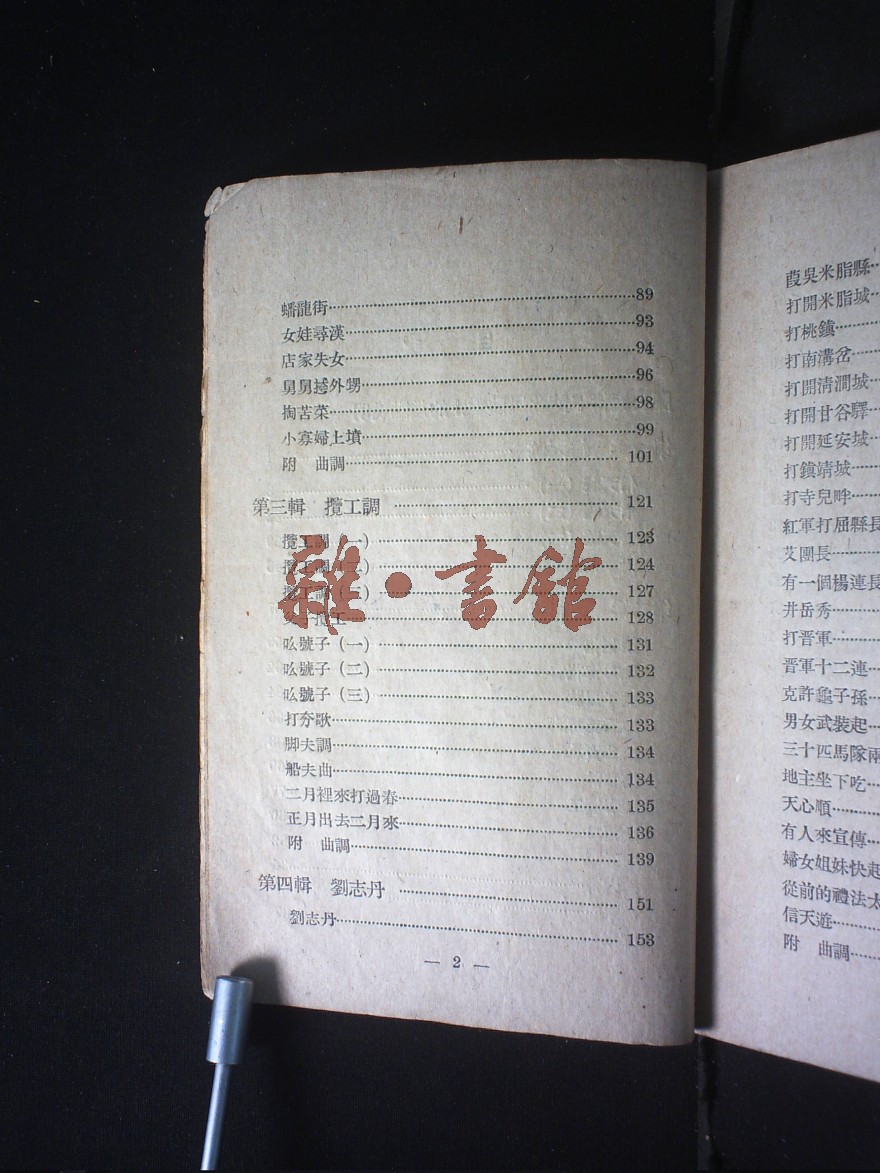 蟠龍街……89
女娃尋漢……93
店家失女……94
舅舅挷外甥……96
掏苦菜……98
小寡婦上墳……99
附 曲調……101
第三輯 攬工調……121
攬工調(一)……123
攬工調(二)……124
攬工調(三)……127
攬工……128
吆號子(一)……131
吆號子(二)……132
吆號子(三)……133
打夯歌……133
脚夫調……134
船夫曲……134
二月裡來打過春……135
正月出去二月來……136
附 曲調……139
第四輯 劉志丹……151
劉志丹……153
— 2 —
雜·書舘
葭吳米脂縣…
打開米脂城…
打桃鎮…
打南溝岔…
打開清澗城…
打開甘谷驛…
打開延安城…
打鎮靖城…
打寺兒畔…
紅軍打屈縣長
艾團長…
有一個楊連長
井岳秀…
打晋軍…
晋軍十二連…
克許龜子孫…
男女武裝起…
三十匹馬隊兩
地主坐下吃…
天心順…
有人來宣傳…
婦女姐妹快起
從前的禮法太
信天遊…
附 曲調…